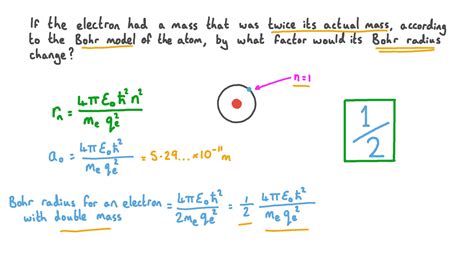 If the electron had a mass that was twice its actual mass, according
to the Bohr model of the atom, by what factor would its Bohr radius
change?
n=1
rₙ = 4πε₀ħ²n² / mₑqₑ²
1/2
a₀ = 4πε₀ħ² / mₑqₑ² = 5.29... × 10⁻¹¹ m
Bohr radius for an electron with double mass = 4πε₀ħ² / 2mₑqₑ² = 1/2 4πε₀ħ² / mₑqₑ²